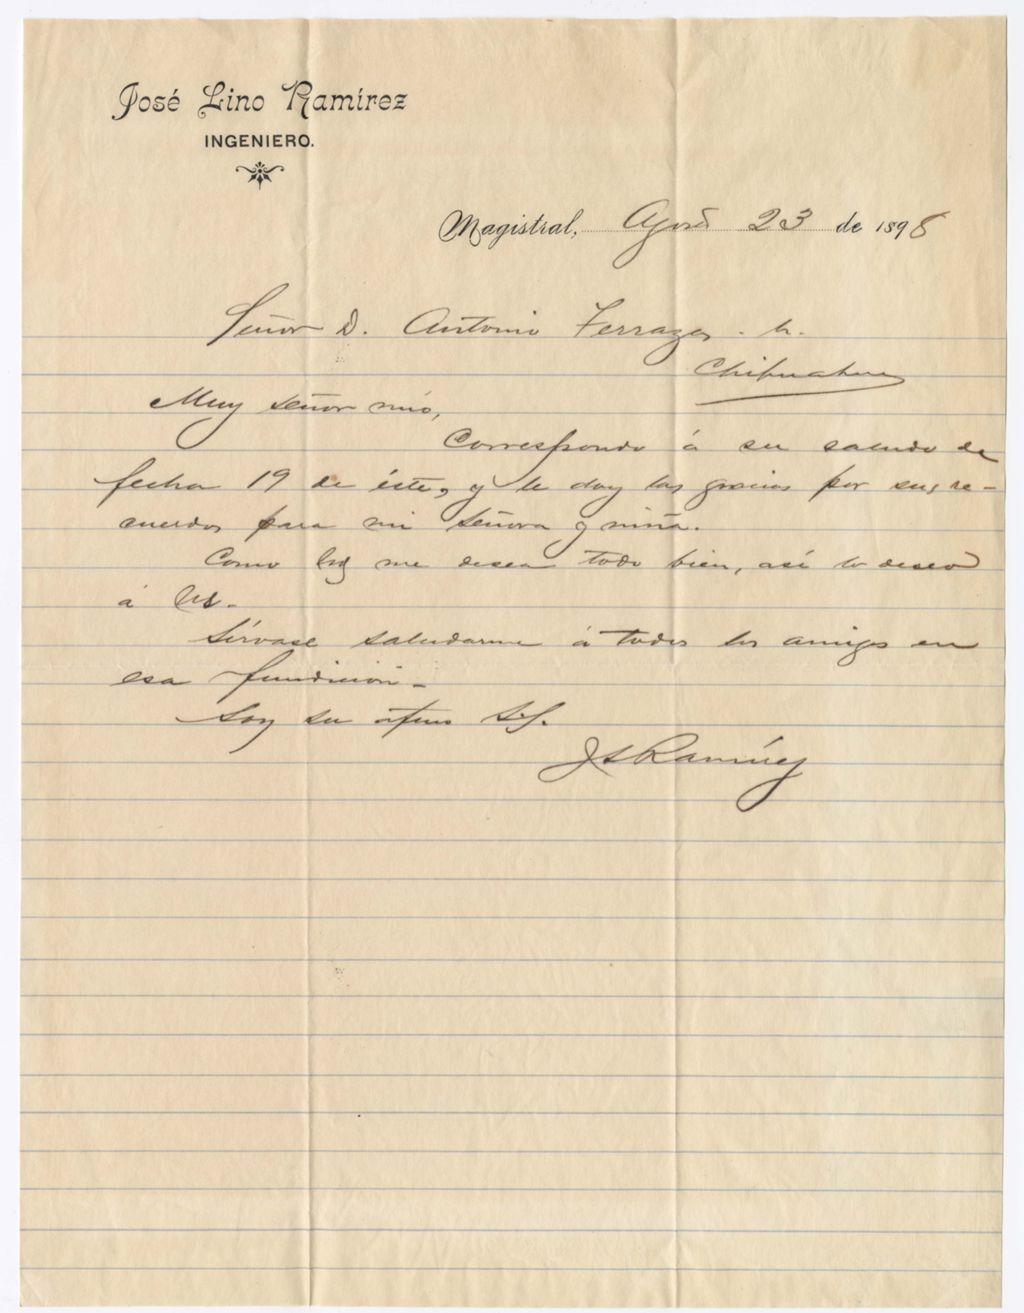 José Lino Ramírez
INGENIERO.
Magistral, Agosto 23 de 1898
Señor D. Antonio Terrazas. h.
Chihuahua
Muy señor mío,
Correspondo á su saludo de
fecha 19 de éste, y le doy las gracias por sus re-
cuerdos para mi señora y niña.
Como Ud me desea todo bien, así lo deseo
á Ud.
Sírvase saludarme á todos los amigos en
esa fundición.
Soy su afmo S.S.
JLRamírez